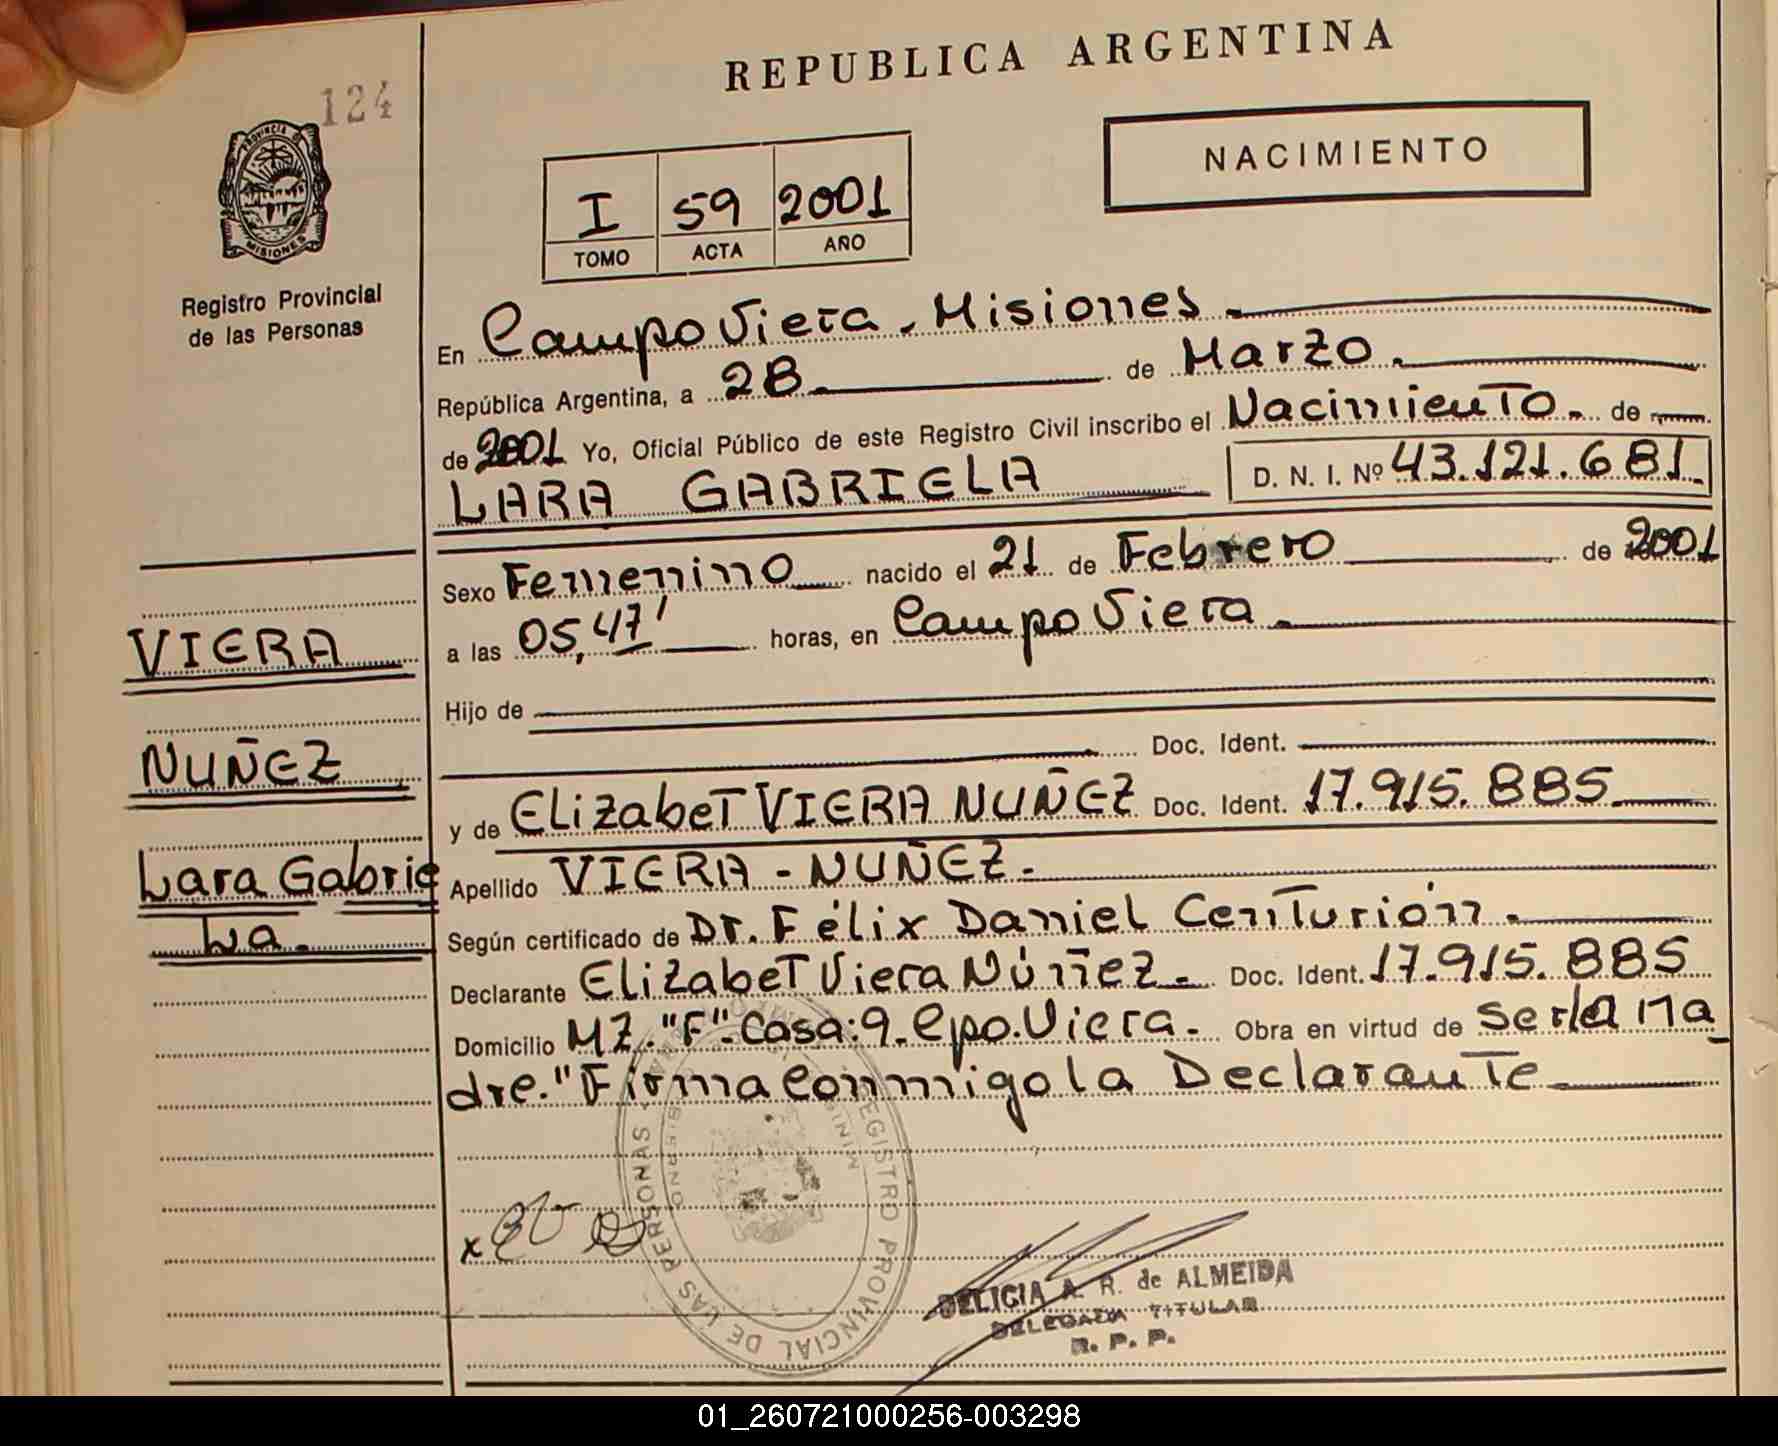 REPUBLICA ARGENTINA
124
NACIMIENTO
PROVINCIA DE
MISIONES
I 59 2001
TOMO ACTA AÑO
Registro Provincial
de las Personas
En Campo Viera. Misiones.
República Argentina, a 28. de Marzo.
de 2001 Yo, Oficial Público de este Registro Civil inscribo el Nacimiento. de
LARA GABRIELA D. N. I. Nº 43.121.681.
Sexo Femenino nacido el 21 de Febrero de 2001
a las 05,47' horas, en Campo Viera.
VIERA
Hijo de
Doc. Ident.
NUÑEZ
y de Elizabet VIERA NUÑEZ Doc. Ident. 17.915.885
Lara Gabrie
la.
Apellido VIERA - NUÑEZ.
Según certificado de Dr. Félix Daniel Centurión.
Declarante Elizabet Viera Núñez. Doc. Ident. 17.915.885
Domicilio MZ. "F". Casa: 9. Cpo. Viera. Obra en virtud de ser la ma
dre." Firma conmigo la Declarante
REGISTRO PROVINCIAL DE LAS PERSONAS
x
DELICIA A. R. de ALMEIDA
DELEGADA TITULAR
R. P. P.
01_260721000256-003298